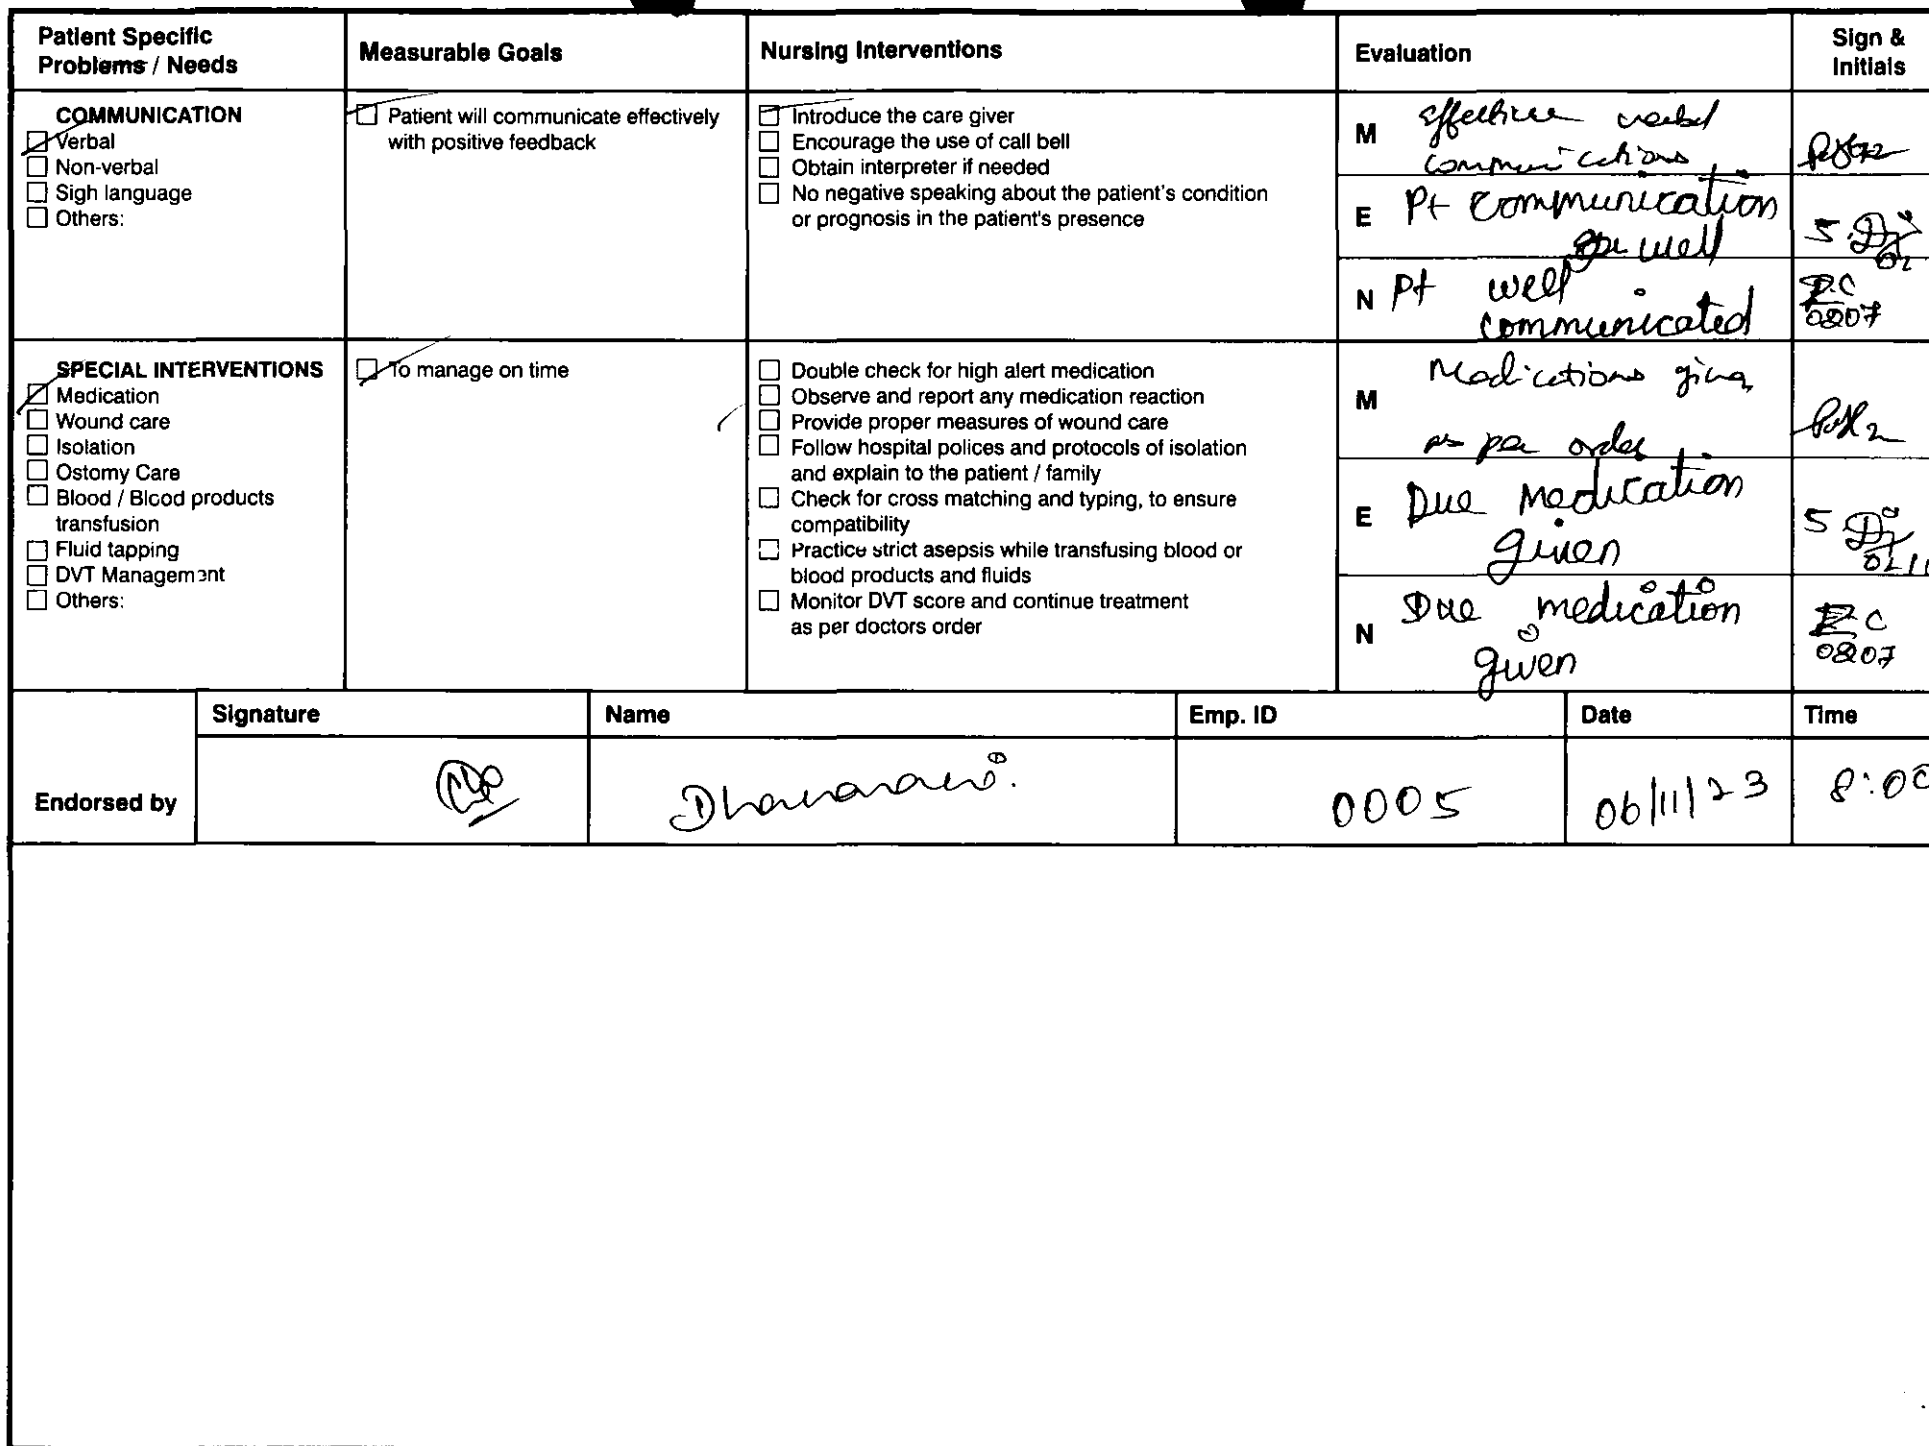 Patient Specific
Problems / Needs
Measurable Goals
Nursing Interventions
Evaluation
Sign &
Initials
COMMUNICATION
☑ Verbal
☐ Non-verbal
☐ Sigh language
☐ Others:
☑ Patient will communicate effectively
with positive feedback
☑ Introduce the care giver
☐ Encourage the use of call bell
☐ Obtain interpreter if needed
☐ No negative speaking about the patient's condition
or prognosis in the patient's presence
M effective verbal
communications
E Pt communication
well
N Pt well
communicated
P.C
0807
SPECIAL INTERVENTIONS
☑ Medication
☐ Wound care
☐ Isolation
☐ Ostomy Care
☐ Blood / Blood products
transfusion
☐ Fluid tapping
☐ DVT Management
☐ Others:
☑ To manage on time
☐ Double check for high alert medication
☐ Observe and report any medication reaction
☐ Provide proper measures of wound care
☐ Follow hospital polices and protocols of isolation
and explain to the patient / family
☐ Check for cross matching and typing, to ensure
compatibility
☐ Practice strict asepsis while transfusing blood or
blood products and fluids
☐ Monitor DVT score and continue treatment
as per doctors order
M Medications given
as per order
E Due Medication
given
N Due medication
given
C
0807
Signature
Name
Emp. ID
Date
Time
Endorsed by
0005
06/11/23
8:00